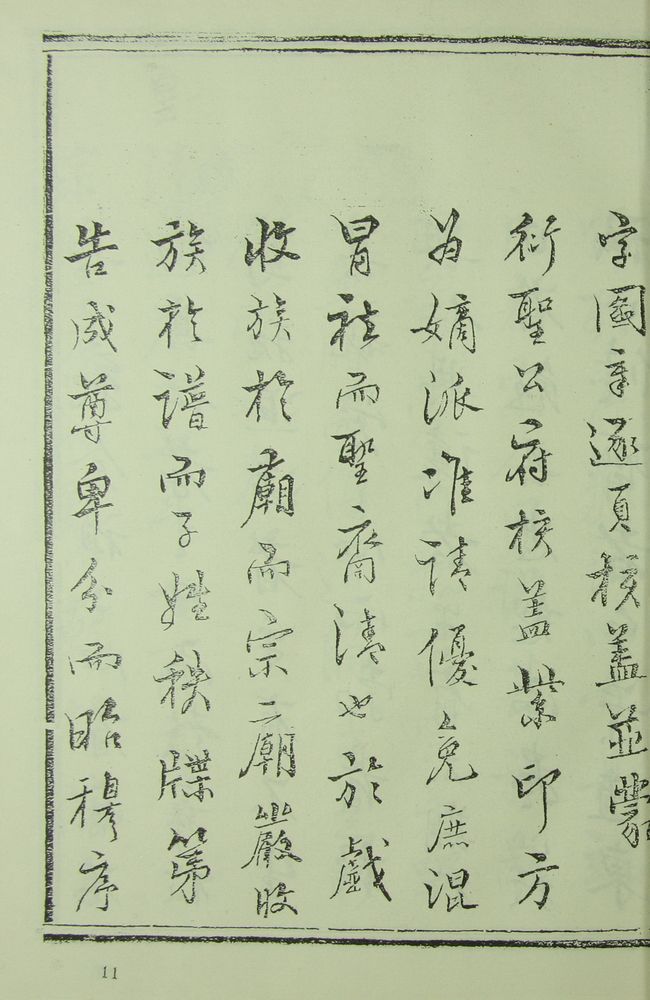 字國章逐頁核蓋並蒙
衍聖公府核蓋紫印方
為嫡派准請優免庶混
冒祛而聖裔清也於戲
收族於廟而宗廟嚴收
族於譜而子姓秩牒第
告成尊卑分而昭穆序
11